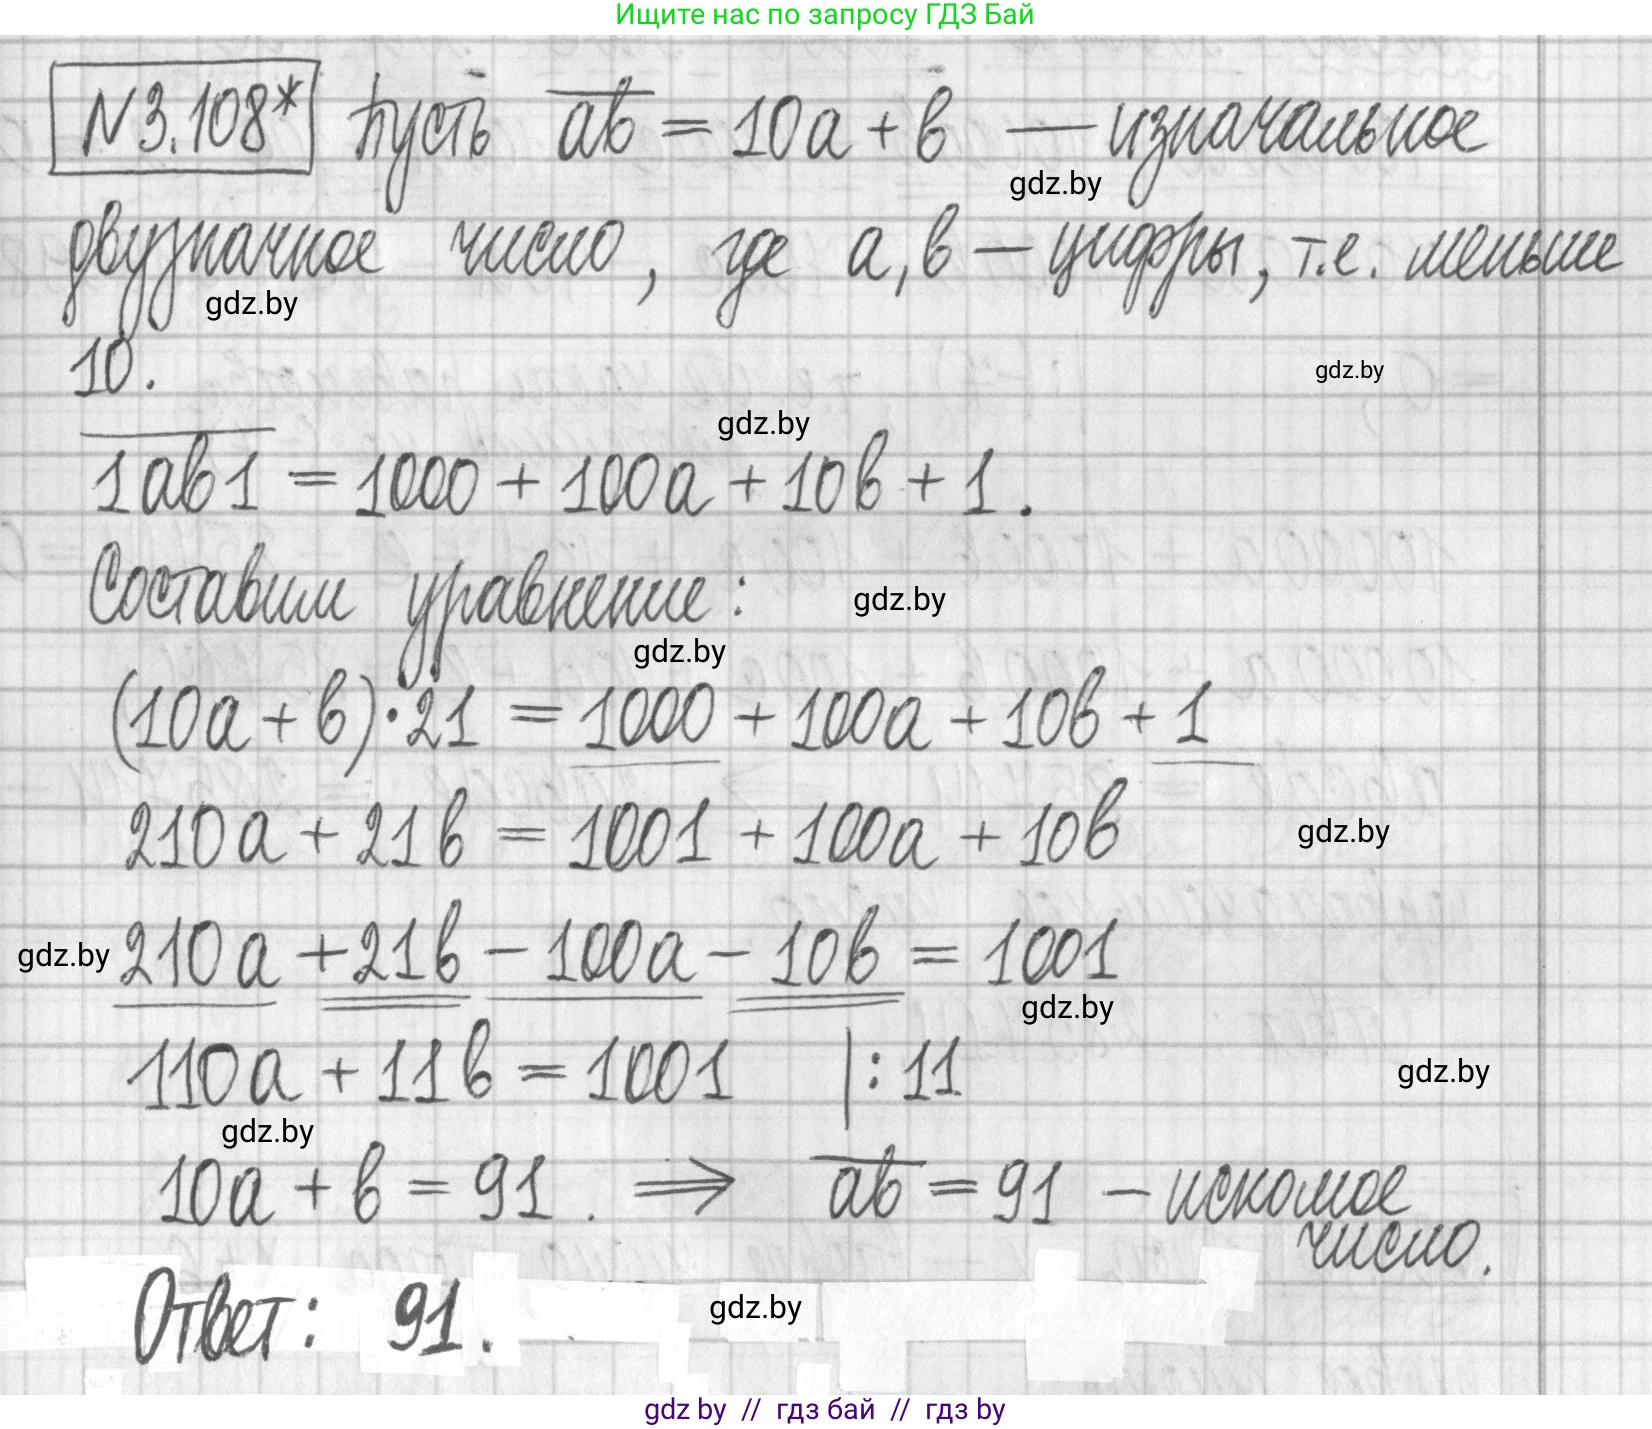 Ищите нас по запросу ГДЗ Бай
N3.108* Пусть ab = 10a + b — изначальное
gdz.by
двузначное число, где a, b — цифры, т.е. меньше
gdz.by
10.
gdz.by
gdz.by
1ab1 = 1000 + 100a + 10b + 1.
Составим уравнение:
gdz.by
gdz.by
(10a + b)·21 = 1000 + 100a + 10b + 1
210a + 21b = 1001 + 100a + 10b
gdz.by
gdz.by
210a + 21b - 100a - 10b = 1001
gdz.by
110a + 11b = 1001 | : 11
gdz.by
gdz.by
10a + b = 91. ⟹ ab = 91 - искомое
число.
Ответ: 91.
gdz.by
gdz by // гдз бай // гдз by